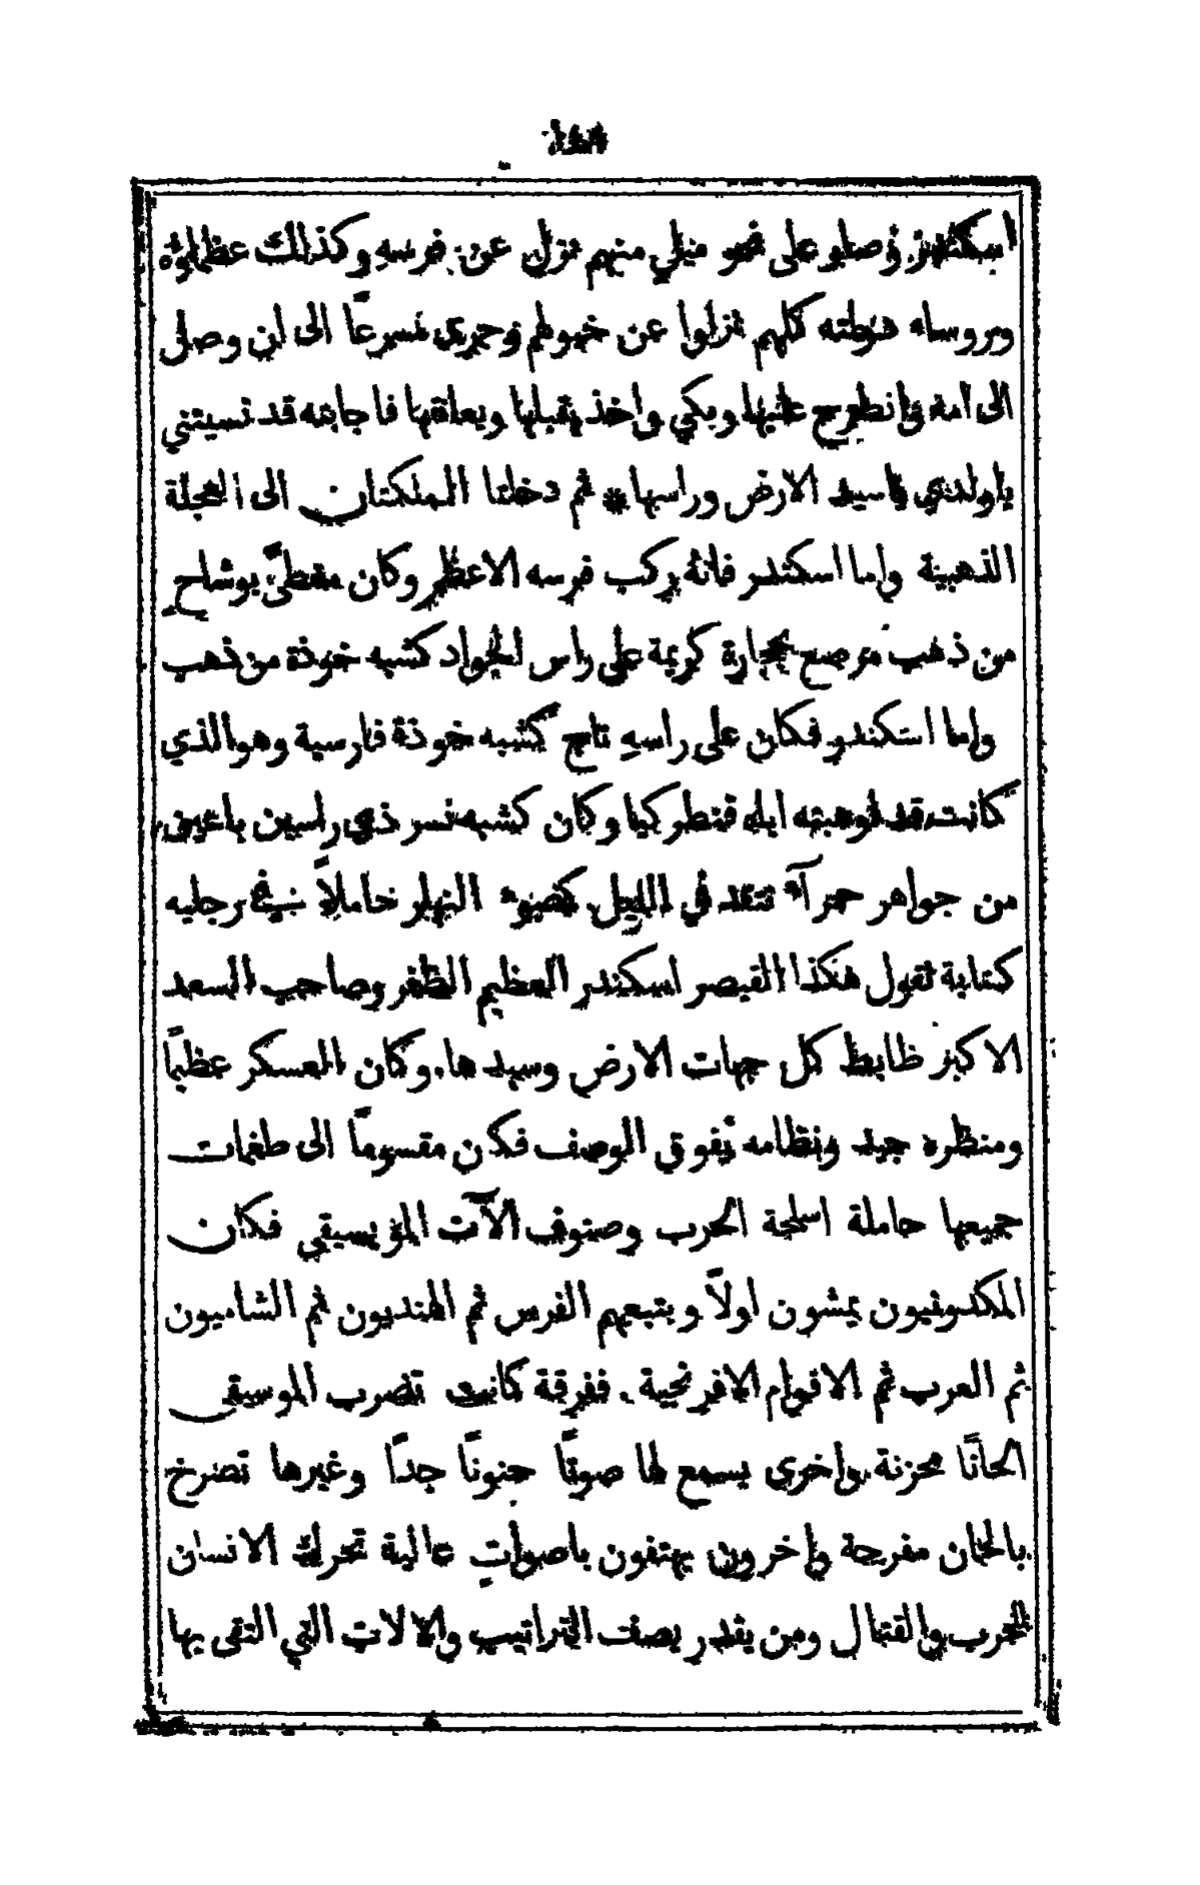 اسكندر وصلو على نحو ميلي منهم نزل عن فرسهِ وكذلك عظماوُه
وبروساء شرطته كلهم نزلوا عن خيولهم وجري مسرعًا الى ان وصلى
الى امه وانطرح عليها وبكي واخذ يقبلها ويعانقها فاجابته قد نسيتني
ياولدي ياسيد الارض وراسها * ثم دخلتا الملكتان الى العجلة
الذهبية واما اسكندر فانهُ ركب فرسه الاعظم وكان مغطىً بوشاح
من ذهب مرصع بحجارة كريمة على راس الجواد كشبه خوذة من ذهب
واما اسكندر فكان على راسهِ تاج كشبه خوذة فارسية وهو الذي
كانت قد اوهبته اياه قنطوركيا وكان كشبه نسر ذي راسين باعين
من جواهر حمرآء تتقد في الليل كضوء النهار حاملاً في رجليه
كتابة تقول هكذا القيصر اسكندر العظيم الظفر وصاحب السعد
الاكبر ظابط كل جهات الارض وسيدها. وكان العسكر عظيمًا
ومنظره جيد ونظامه يفوق الوصف فكان مقسومًا الى طغمات
جميعها حاملة اسلحة الحرب وصنوف الآت الموسيقي فكان
المكدونيون يمشون اولاً ويتبعهم الفرس ثم الهنديون ثم الشاميون
ثم العرب ثم الاقوام الافرنجية. ففرقة كانت تضرب الموسيقى
الحانًا محزنة. واخرى يسمع لها صوتًا حنونًا جدًا وغيرها تصرخ
بالحان مفرحة واخرون يهتفون باصوات عالية تحرك الانسان
للحرب والقتال ومن يقدر يصف التراتيب والالات التي التقى بها